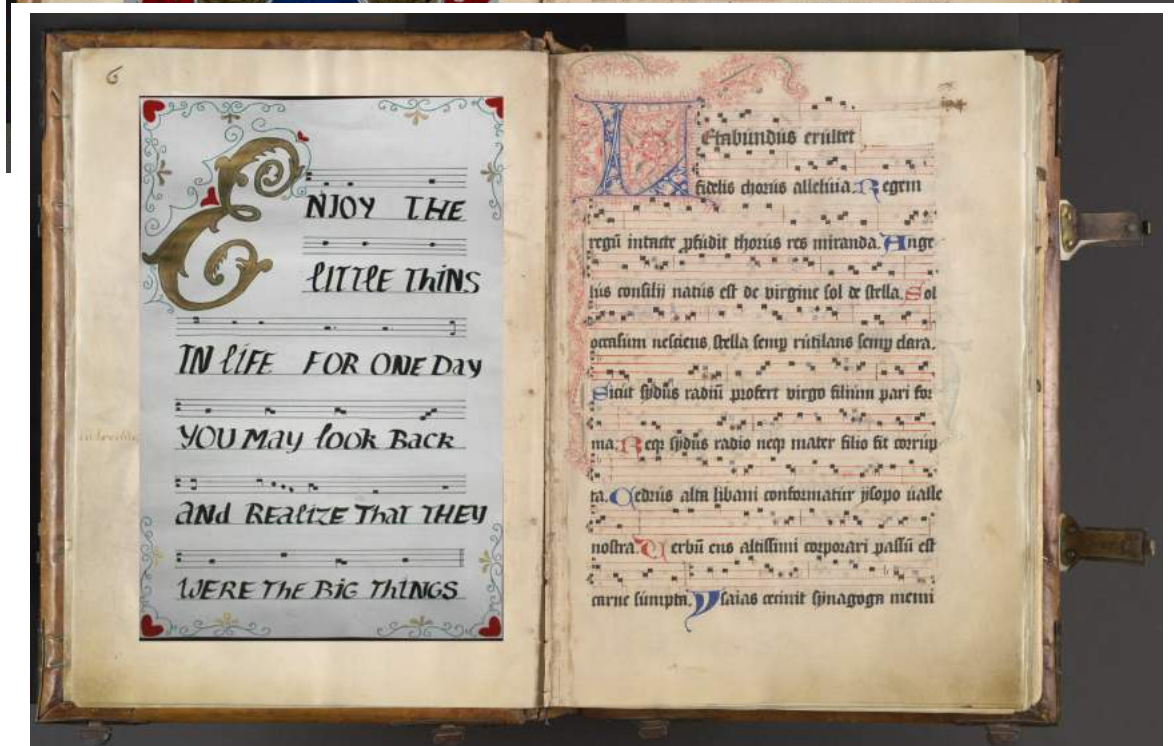 6
ENJOY THE
LITTLE THINS
IN LIFE FOR ONE DAY
YOU MAY LOOK BACK
AND REALIZE THAT THEY
WERE THE BIG THINGS
Letabundus exultet
fidelis chorus alleluia. Regem
regū intacte pfudit thorus res miranda. Ange
lus consilij natus est de virgine sol de stella. Sol
occasum nesciens, stella semp rutilans semp clara.
Sicut sydus radiū profert virgo filium pari for
ma. Neqꝫ sydus radio neqꝫ mater filio fit corrup
ta. Cedrus alta libani conformatur ysopo ualle
nostra. Verbū ens altissimi corporari passū est
carne sumpta. Ysaias cecinit synagoga memi